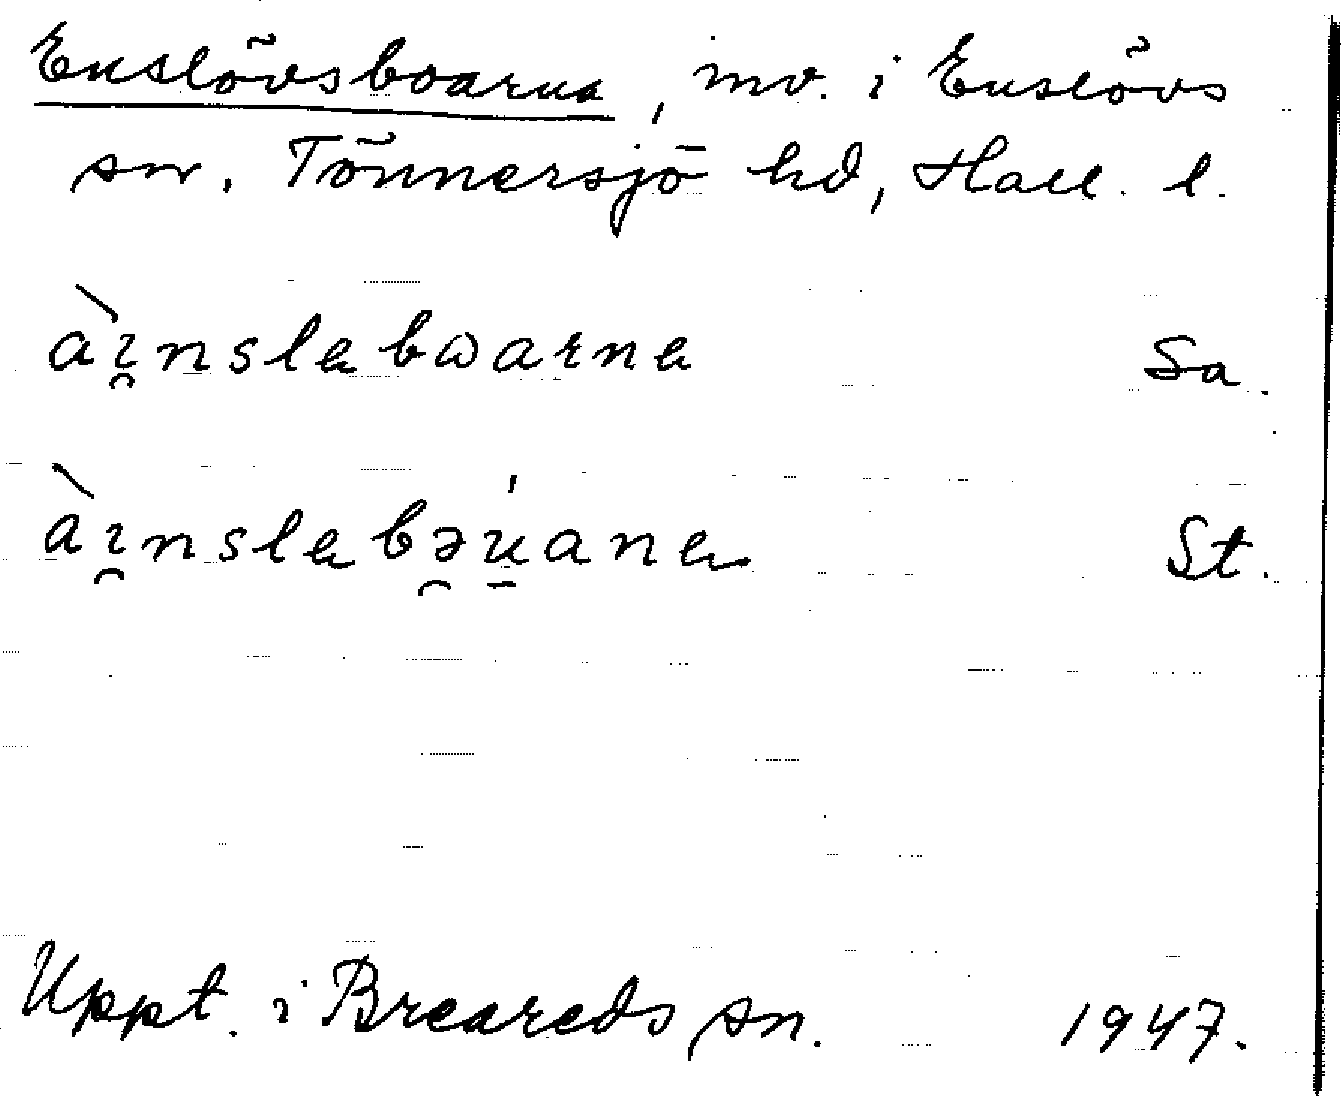 Enslövsboarna, inv. i Enslövs
sn. Tönnersjö hd, Hall. l.
àı̯nslabωarna Sa.
àı̯nslabə̯ú̱ana St.
Uppt. i Breareds sn. 1947.